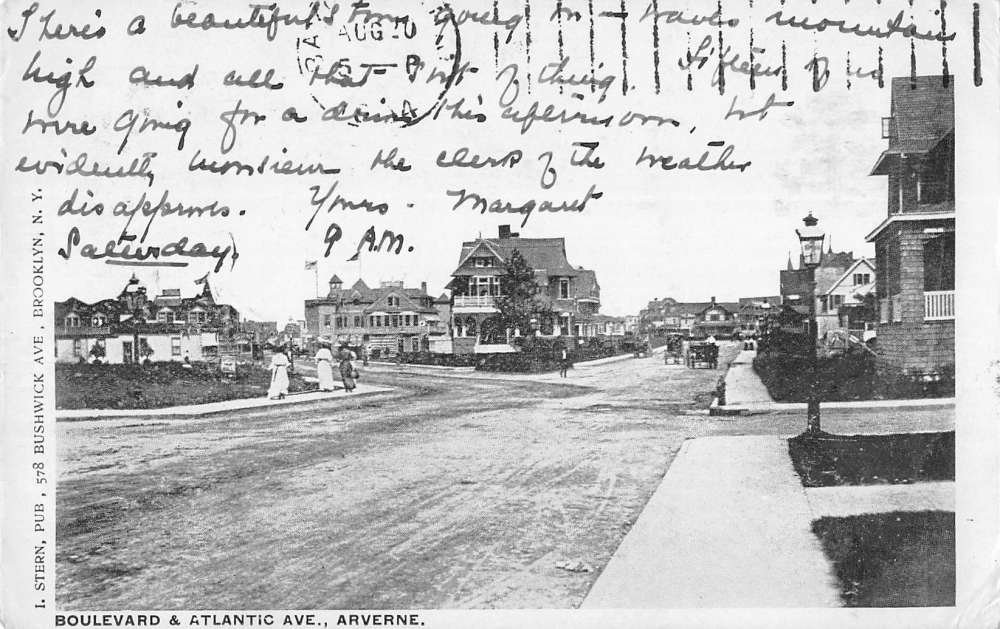 There's a beautiful storm going on - waves mountain
high and all that sort of thing. Fifteen of us
were going for a drive this afternoon, but
evidently monsieur the clerk of the weather
disapproves. Yours - Margaret
Saturday, 9 AM.
AUG 20
5 - P
I. STERN, PUB., 578 BUSHWICK AVE., BROOKLYN, N. Y.
BOULEVARD & ATLANTIC AVE., ARVERNE.